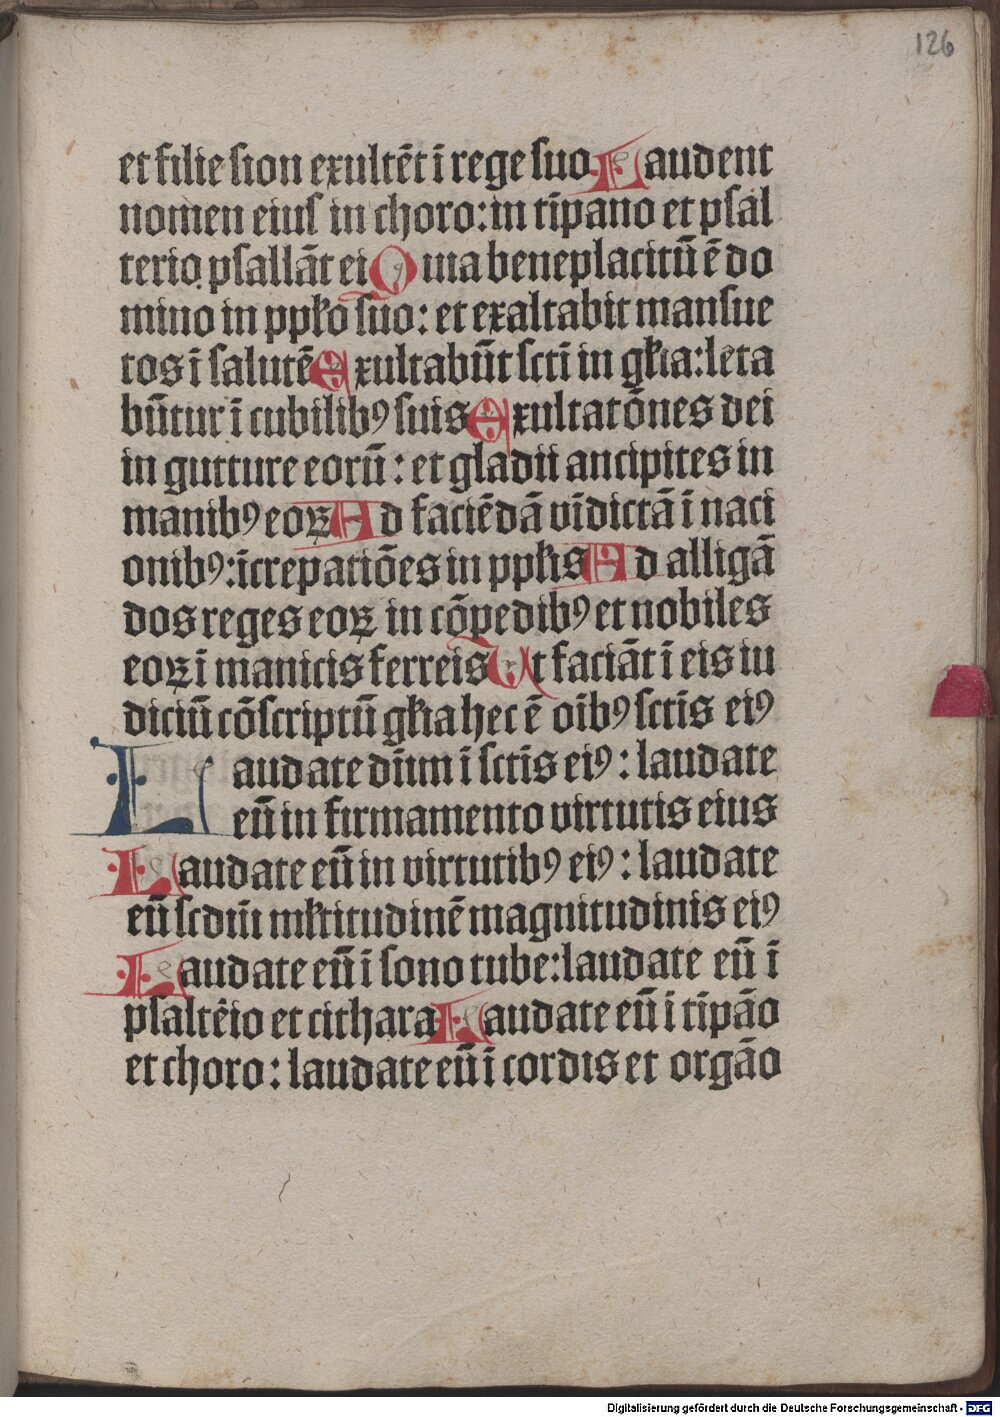 126
et filie sion exultēt ī rege suo Laudent
nomen eius in choro: in tīpano et psal
terio psallāt ei Quia beneplacitū ē do
mino in pp̄lo suo: et exaltabit mansue
tos ī salutē Exultabūt sctī in gl̄ia: leta
būtur ī cubilibꝰ suis Exultatōnes dei
in gutture eorū: et gladii ancipites in
manibꝰ eoꝝ Ad faciēdā vīdictā ī naci
onibꝰ: īcrepatiōes in pp̄lis Ad alligā
dos reges eoꝝ in cōpedibꝰ et nobiles
eoꝝ ī manicis ferreis Ut faciāt ī eis iu
diciū cōscriptū gl̄ia hec ē oībꝰ sctīs eiꝰ
Laudate dn̄m ī sctīs eiꝰ: laudate
eū in firmamento virtutis eius
Laudate eū in virtutibꝰ eiꝰ: laudate
eū scdm̄ ml̄titudinē magnitudinis eiꝰ
Laudate eū ī sono tube: laudate eū ī
psaltēio et cithara Laudate eū ī tīpāo
et choro: laudate eū ī cordis et orgāo
Digitalisierung gefördert durch die Deutsche Forschungsgemeinschaft - DFG